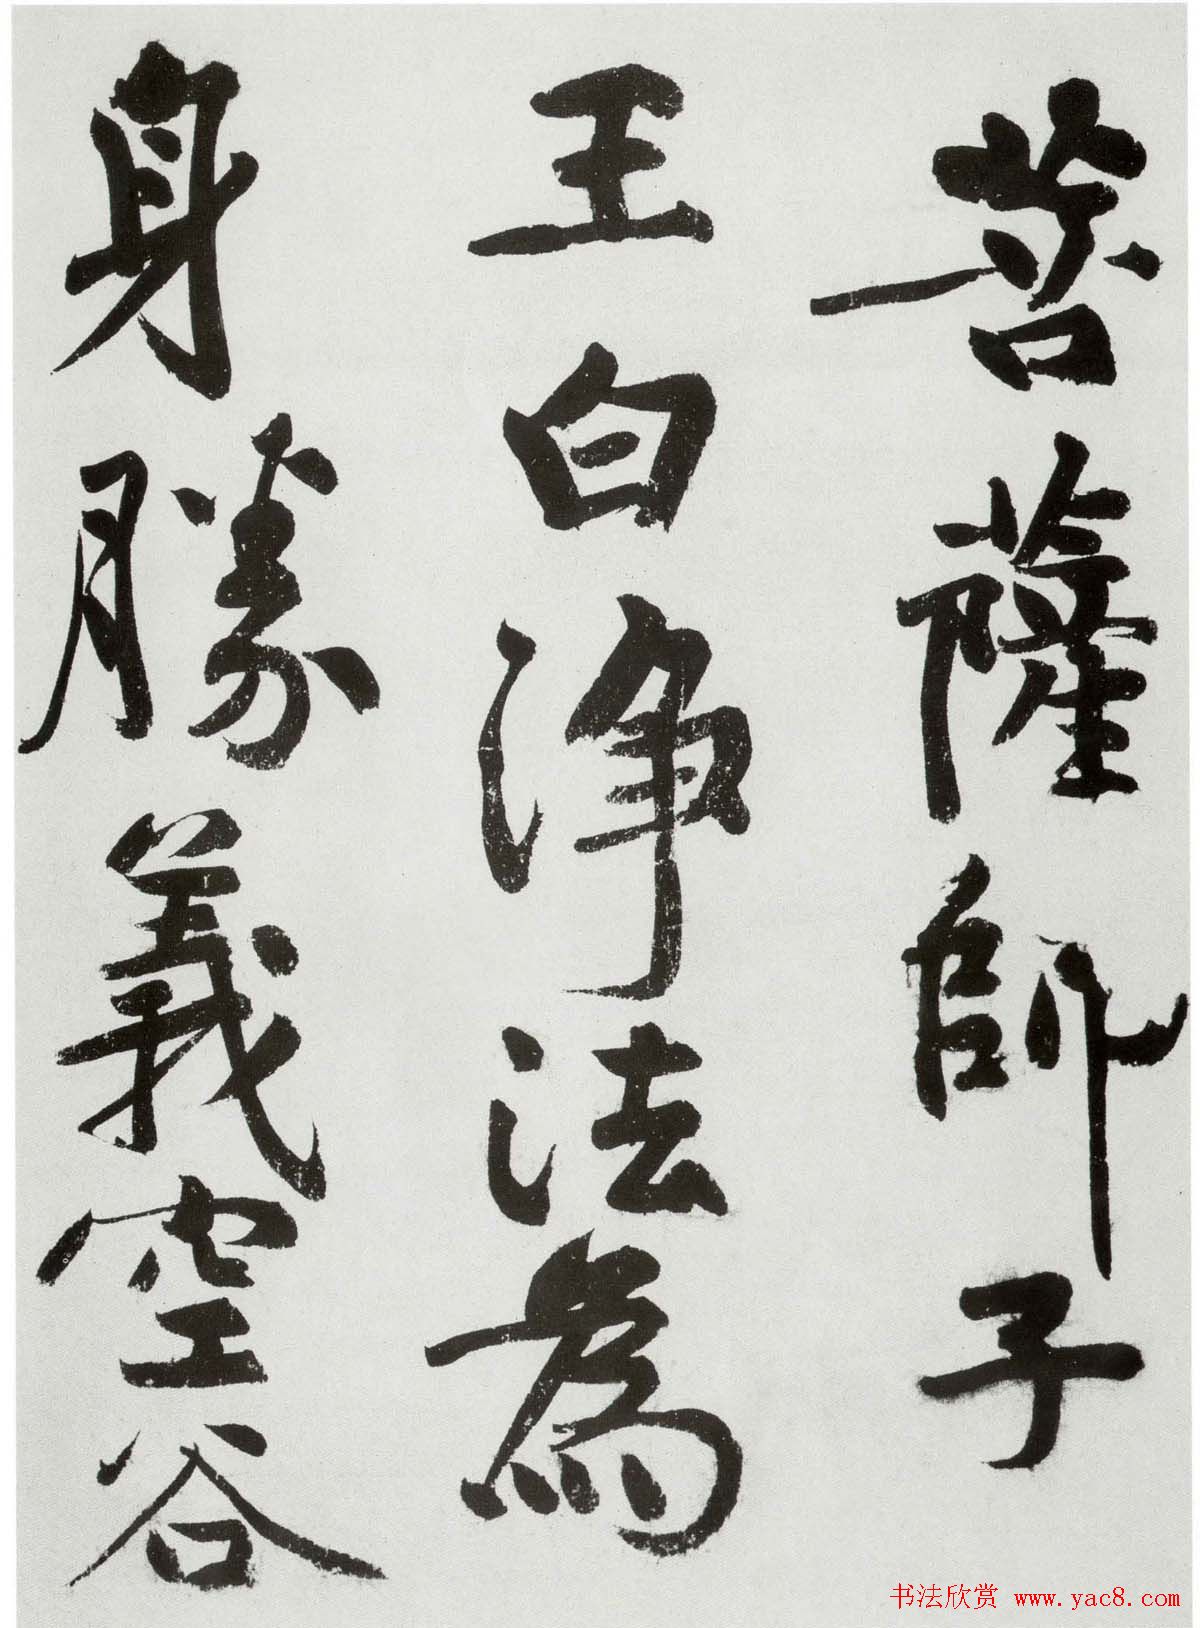 菩薩師子
王白淨法為
身勝義空谷
书法欣赏 www.yac8.com